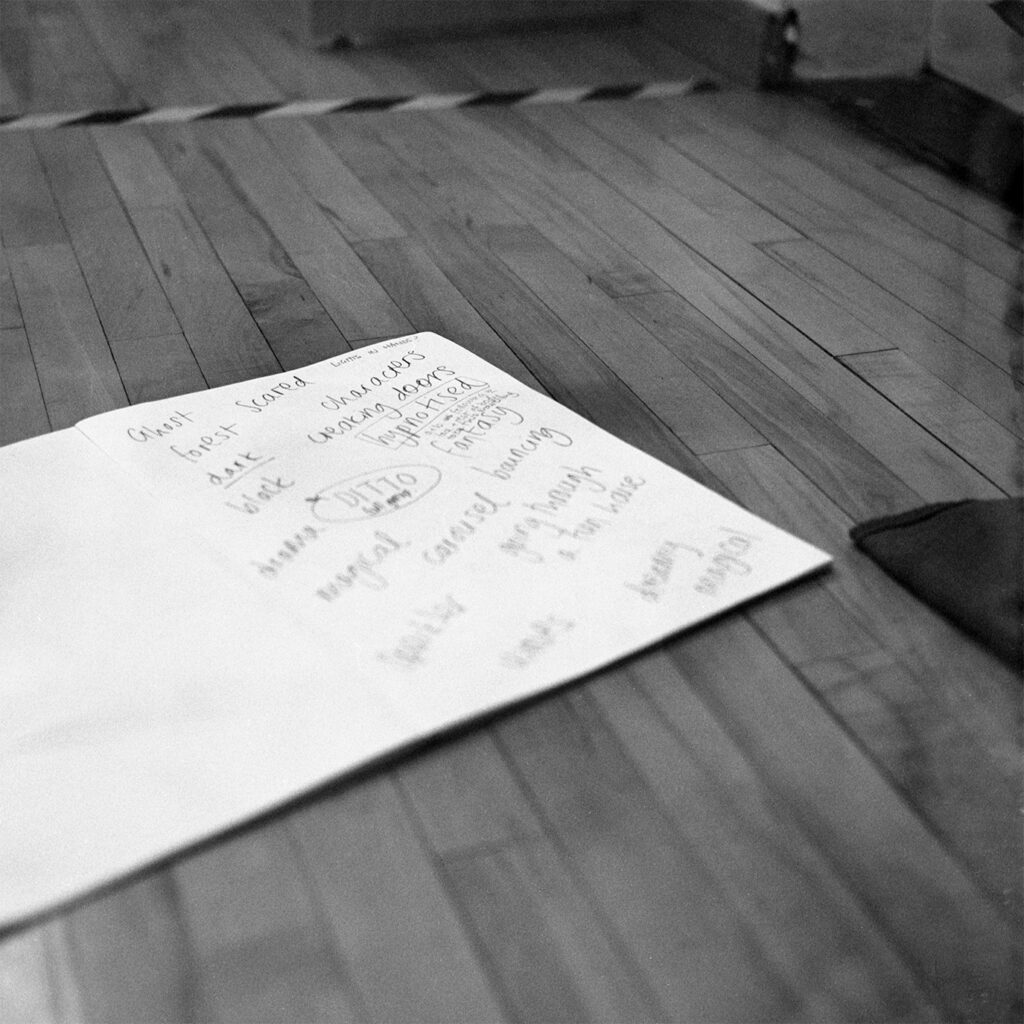 LIGHTS IN HANDS?
Ghost scared characters
forest creaking doors
dark hypnotised
black fantasy
DITTO bouncing
drama
magical carousel going through
a fun house
dreamy magical